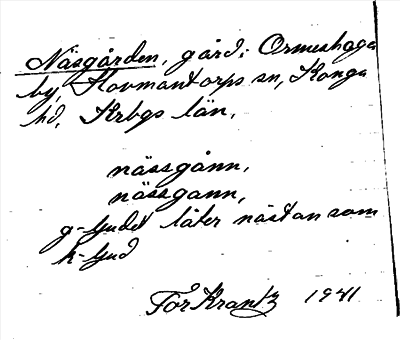 Näsgården, gård i Ormeshaga
by, Hovmantorps sn, Konga
hd, Krbgs län,
nässgånn,
nässgann,
g-ljudet låter nästan som
k-ljud
Tor Krantz 1941